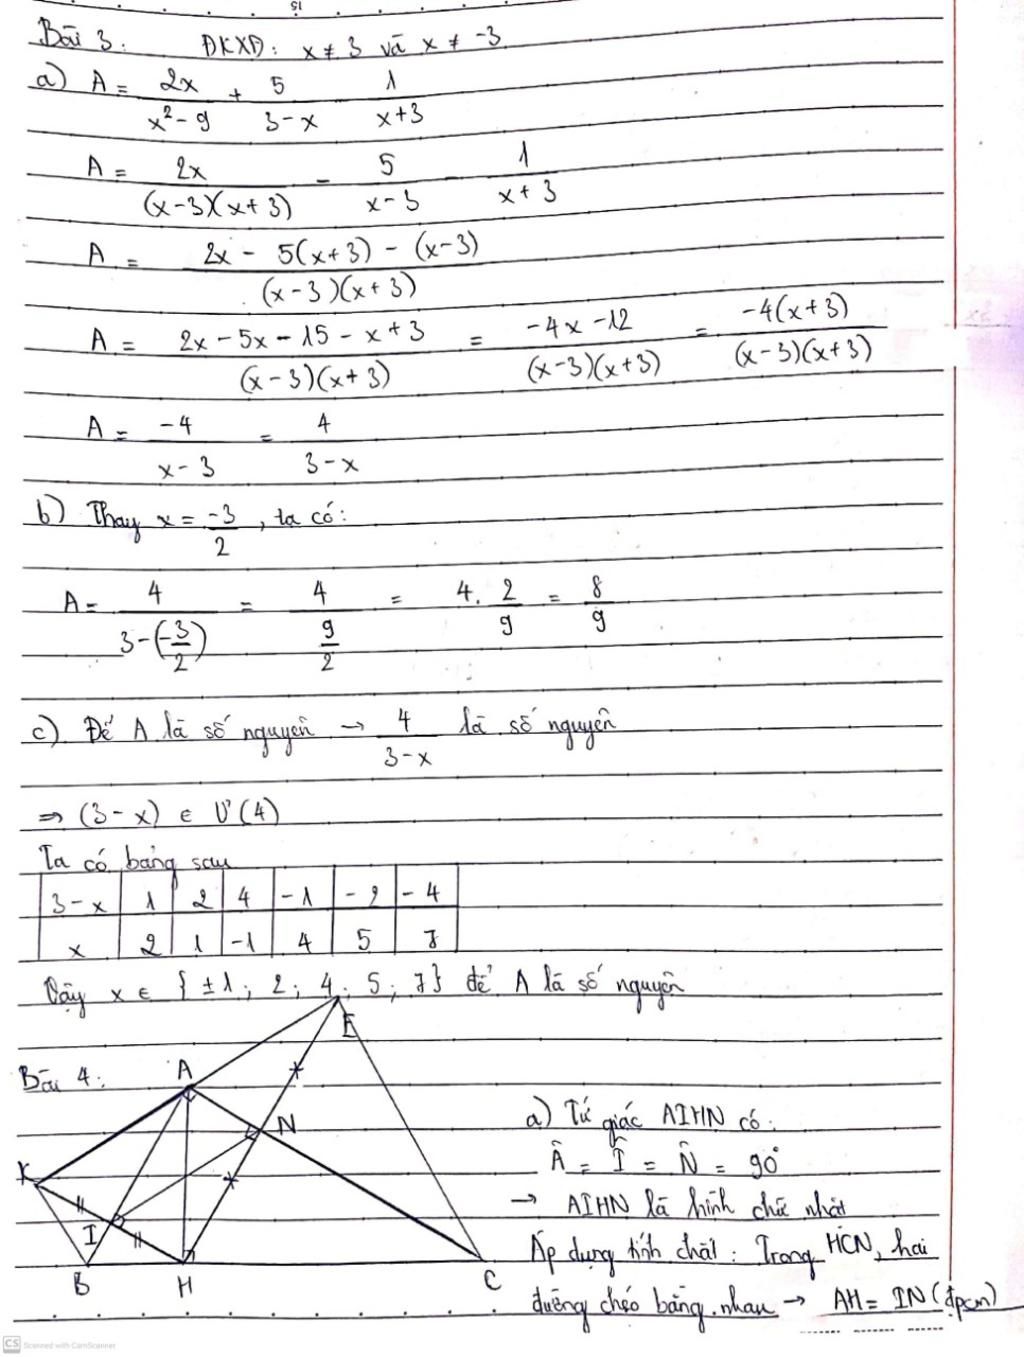 Bài 3: ĐKXĐ: x ≠ 3 và x ≠ -3
a) A = 2x / (x² - 9) + 5 / (3 - x) - 1 / (x + 3)
A = 2x / ((x-3)(x+3)) - 5 / (x-3) - 1 / (x+3)
A = (2x - 5(x+3) - (x-3)) / ((x-3)(x+3))
A = (2x - 5x - 15 - x + 3) / ((x-3)(x+3)) = (-4x - 12) / ((x-3)(x+3)) = -4(x+3) / ((x-3)(x+3))
A = -4 / (x-3) = 4 / (3-x)
b) Thay x = -3/2, ta có:
A = 4 / (3-(-3/2)) = 4 / (9/2) = 4. 2/9 = 8/9
c) Để A là số nguyên → 4 / (3-x) là số nguyên
⇒ (3-x) ∈ Ư(4)
Ta có bảng sau
3-x 1 2 4 -1 -2 -4
x 2 1 -1 4 5 7
Vậy x ∈ {±1; 2; 4; 5; 7} để A là số nguyên
Bài 4:
E
A
N
K
I
B H C
a) Tứ giác AIHN có:
Â = Î = N̂ = 90°
→ AIHN là hình chữ nhật
Áp dụng tính chất: Trong HCN, hai
đường chéo bằng nhau → AH = IN (đpcm)
CS Scanned with CamScanner